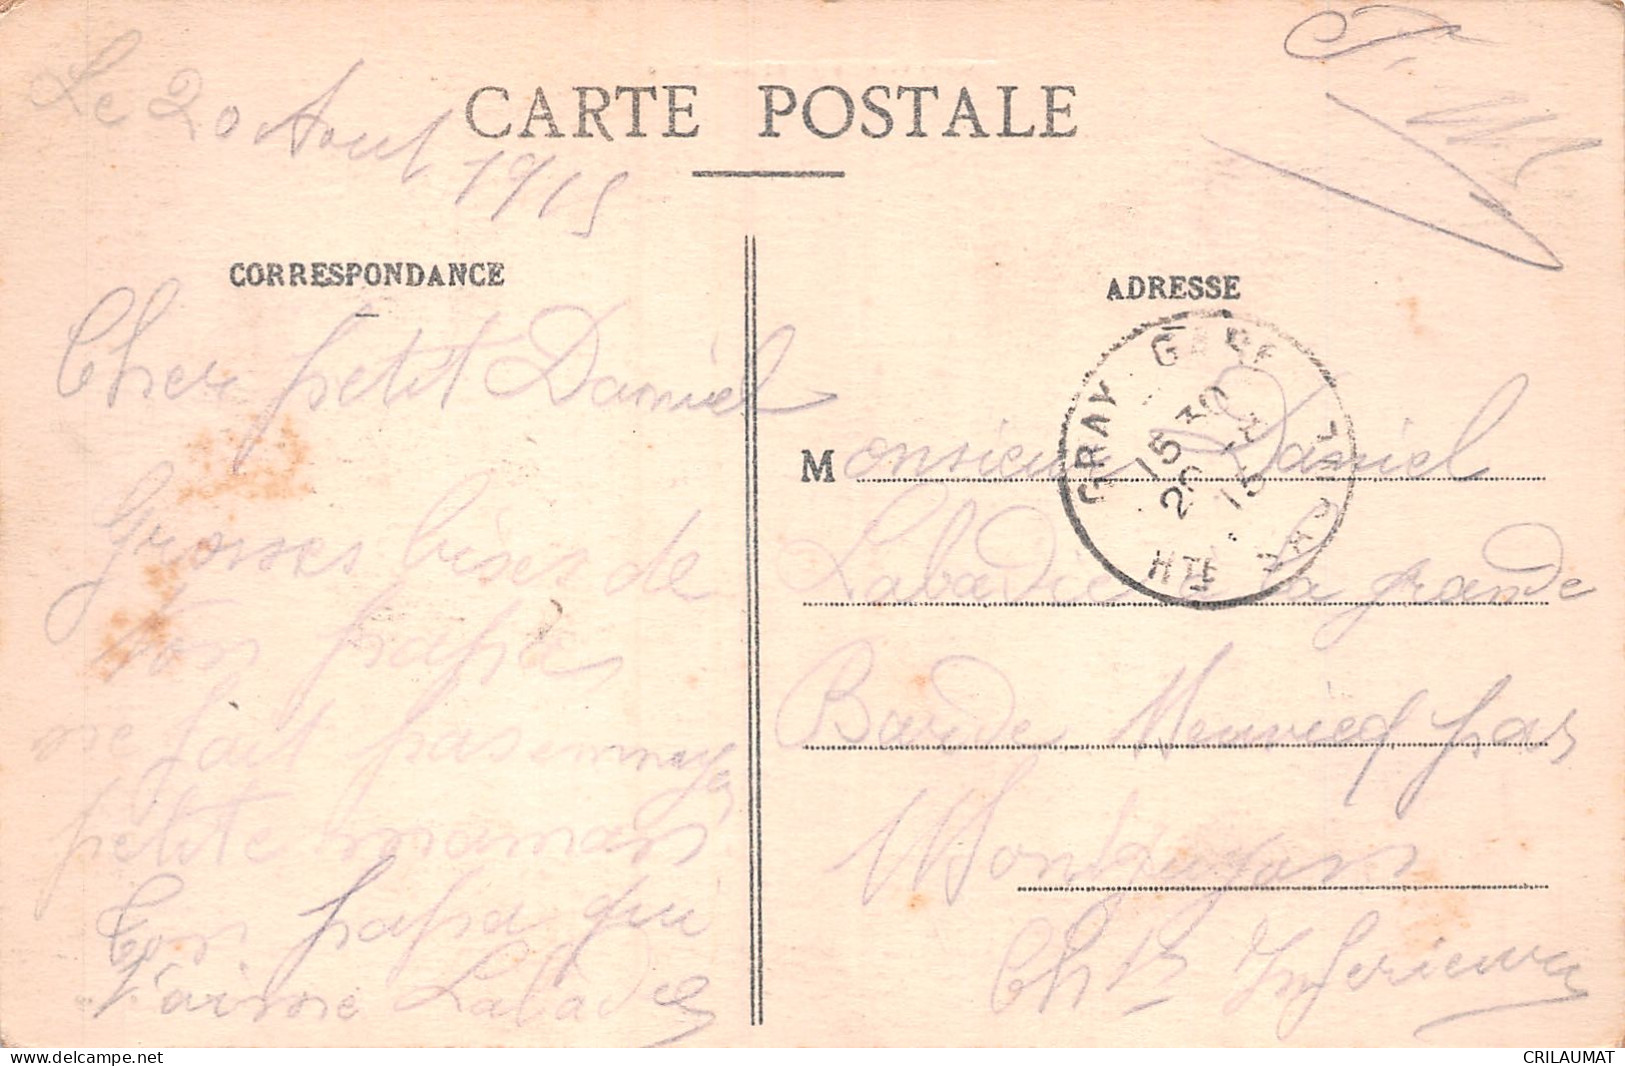 Le 20 Aout
1915
F. M.
CARTE POSTALE
CORRESPONDANCE
Cher petit Daniel
Grosses bises de
ton papa
ne fait pas ennuyer
petite maman
Ton papa qui
t'aime Labadie
ADRESSE
GRAY - GARE
15 30
20 - 8
15
Monsieur Daniel
Labadie à la grande
Barde par
Montguyon
Chte Inférieure
CRILAUMAT